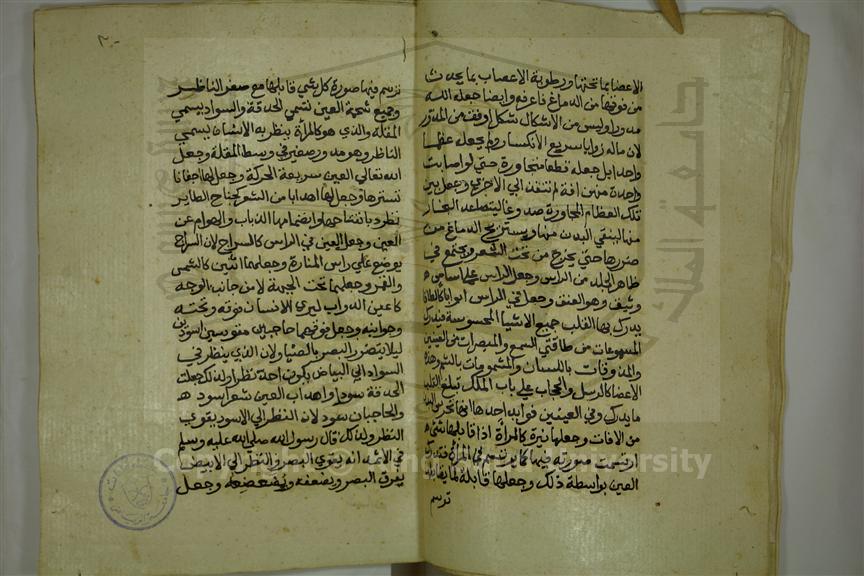 الاعضا بما تحتها ورطوبة الاعصاب بما يحدث
من فوقها من الدماغ فاعرفه وايضا جعله الله
مدورا وليس من الاشكال شكل اوفق من المدور
لان ماله زوايا سريع الانكسار ولم يجعله عظما
واحدا بل جعله قطعا متجاورة حتي لو اصابت
واحدة منهن افة لم تنفذ الي الاخري وجعل بين
تلك العظام المجاورة صدوعا ليتصاعد البخار
منها لينقي البدن منها ويستريح الدماغ من
ضررها حتي يخرج من تحت الشعر ويجتمع في
ظاهر الجلد من الراس وجعل الراس علي اساس
وثيق وهو العنق وجعل في الراس ابوابا كالطاقات
يدرك بها القلب جميع الاشيا المحسوسة فيدرك
المسموعات من طاقتي السمع والمبصرات من العينين
والمذوقات باللسان والمشمومات بالشم وهذه
الاعضا كالرسل والحجاب علي باب الملك تبلغ القلب
ما يدرك وفي العينين فوايد احدها انها تحرس البدن
من الافات وجعلها نيرة كالمرأة اذا قابلها شي
ارتسمت صورته فيها كما يرتسم في المرأة
العين بواسطة ذلك وجعلها قابلة لما يقابلها
ترسم
٢٠
ترسم فيها صورة كل شي قابلها مع صغر الناظر
وجميع شحمة العين تسمي الحدقة والسواد يسمي
المقله والذي هو كالمرأة ينظر به الانسان يسمي
الناظر وهو مدور صغير في وسط المقلة وجعل
الله تعالي العين سريعة الحركة وجعل لها اجفانا
تسترها وجعل لها اهدابا من الشعر كجناح الطاير
تطرد بانفتاحها وانضمامها الذباب والهوام عن
العين وجعل العين في الراس كالسراج لان السراج
يوضع علي راس المنارة وجعلهما اثنين كالشمس
والقمر وجعلهما تحت الجبهة لا من جانب الوجه
كاعين الدواب ليري الانسان فوقه وتحته
وجوانبه وجعل فوقهما حاجبين مقوسين اسودين
ليلا يتضرر البصر بالضيا ولان الذي ينظر في
السواد الي البياض يكون احد نظرا ولذلك جعلت
الحدقة سودا واهداب العين شعر اسود
والحاجبان سود لان النظر الي الاسود يقوي
النظر ولذلك قال رسول الله صلي الله عليه وسلم
في الاثمد انه يقوي البصر والنظر الي الابيض
يفرق البصر ويضعفه وجعل
Copyright © King Saud University
جامعة الملك سعود